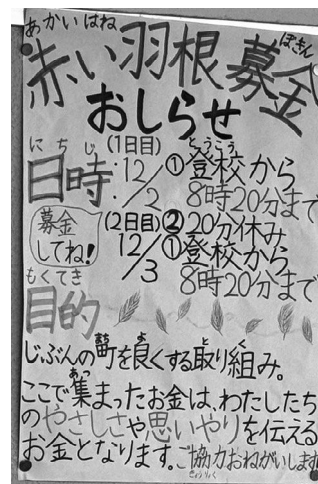 あかいはね ぼきん
赤い羽根募金
おしらせ
にちじ (1日目) とうこう
日時:12/2 ①登校から
8時20分まで
募金してね!
(2日目) ②20分休み
12/3 ①登校から
8時20分まで
もくてき
目的
じぶんの町を良くする取り組み。
ここで集まったお金は、わたしたち
のやさしさや思いやりを伝える
お金となります。ご協力おねがいします